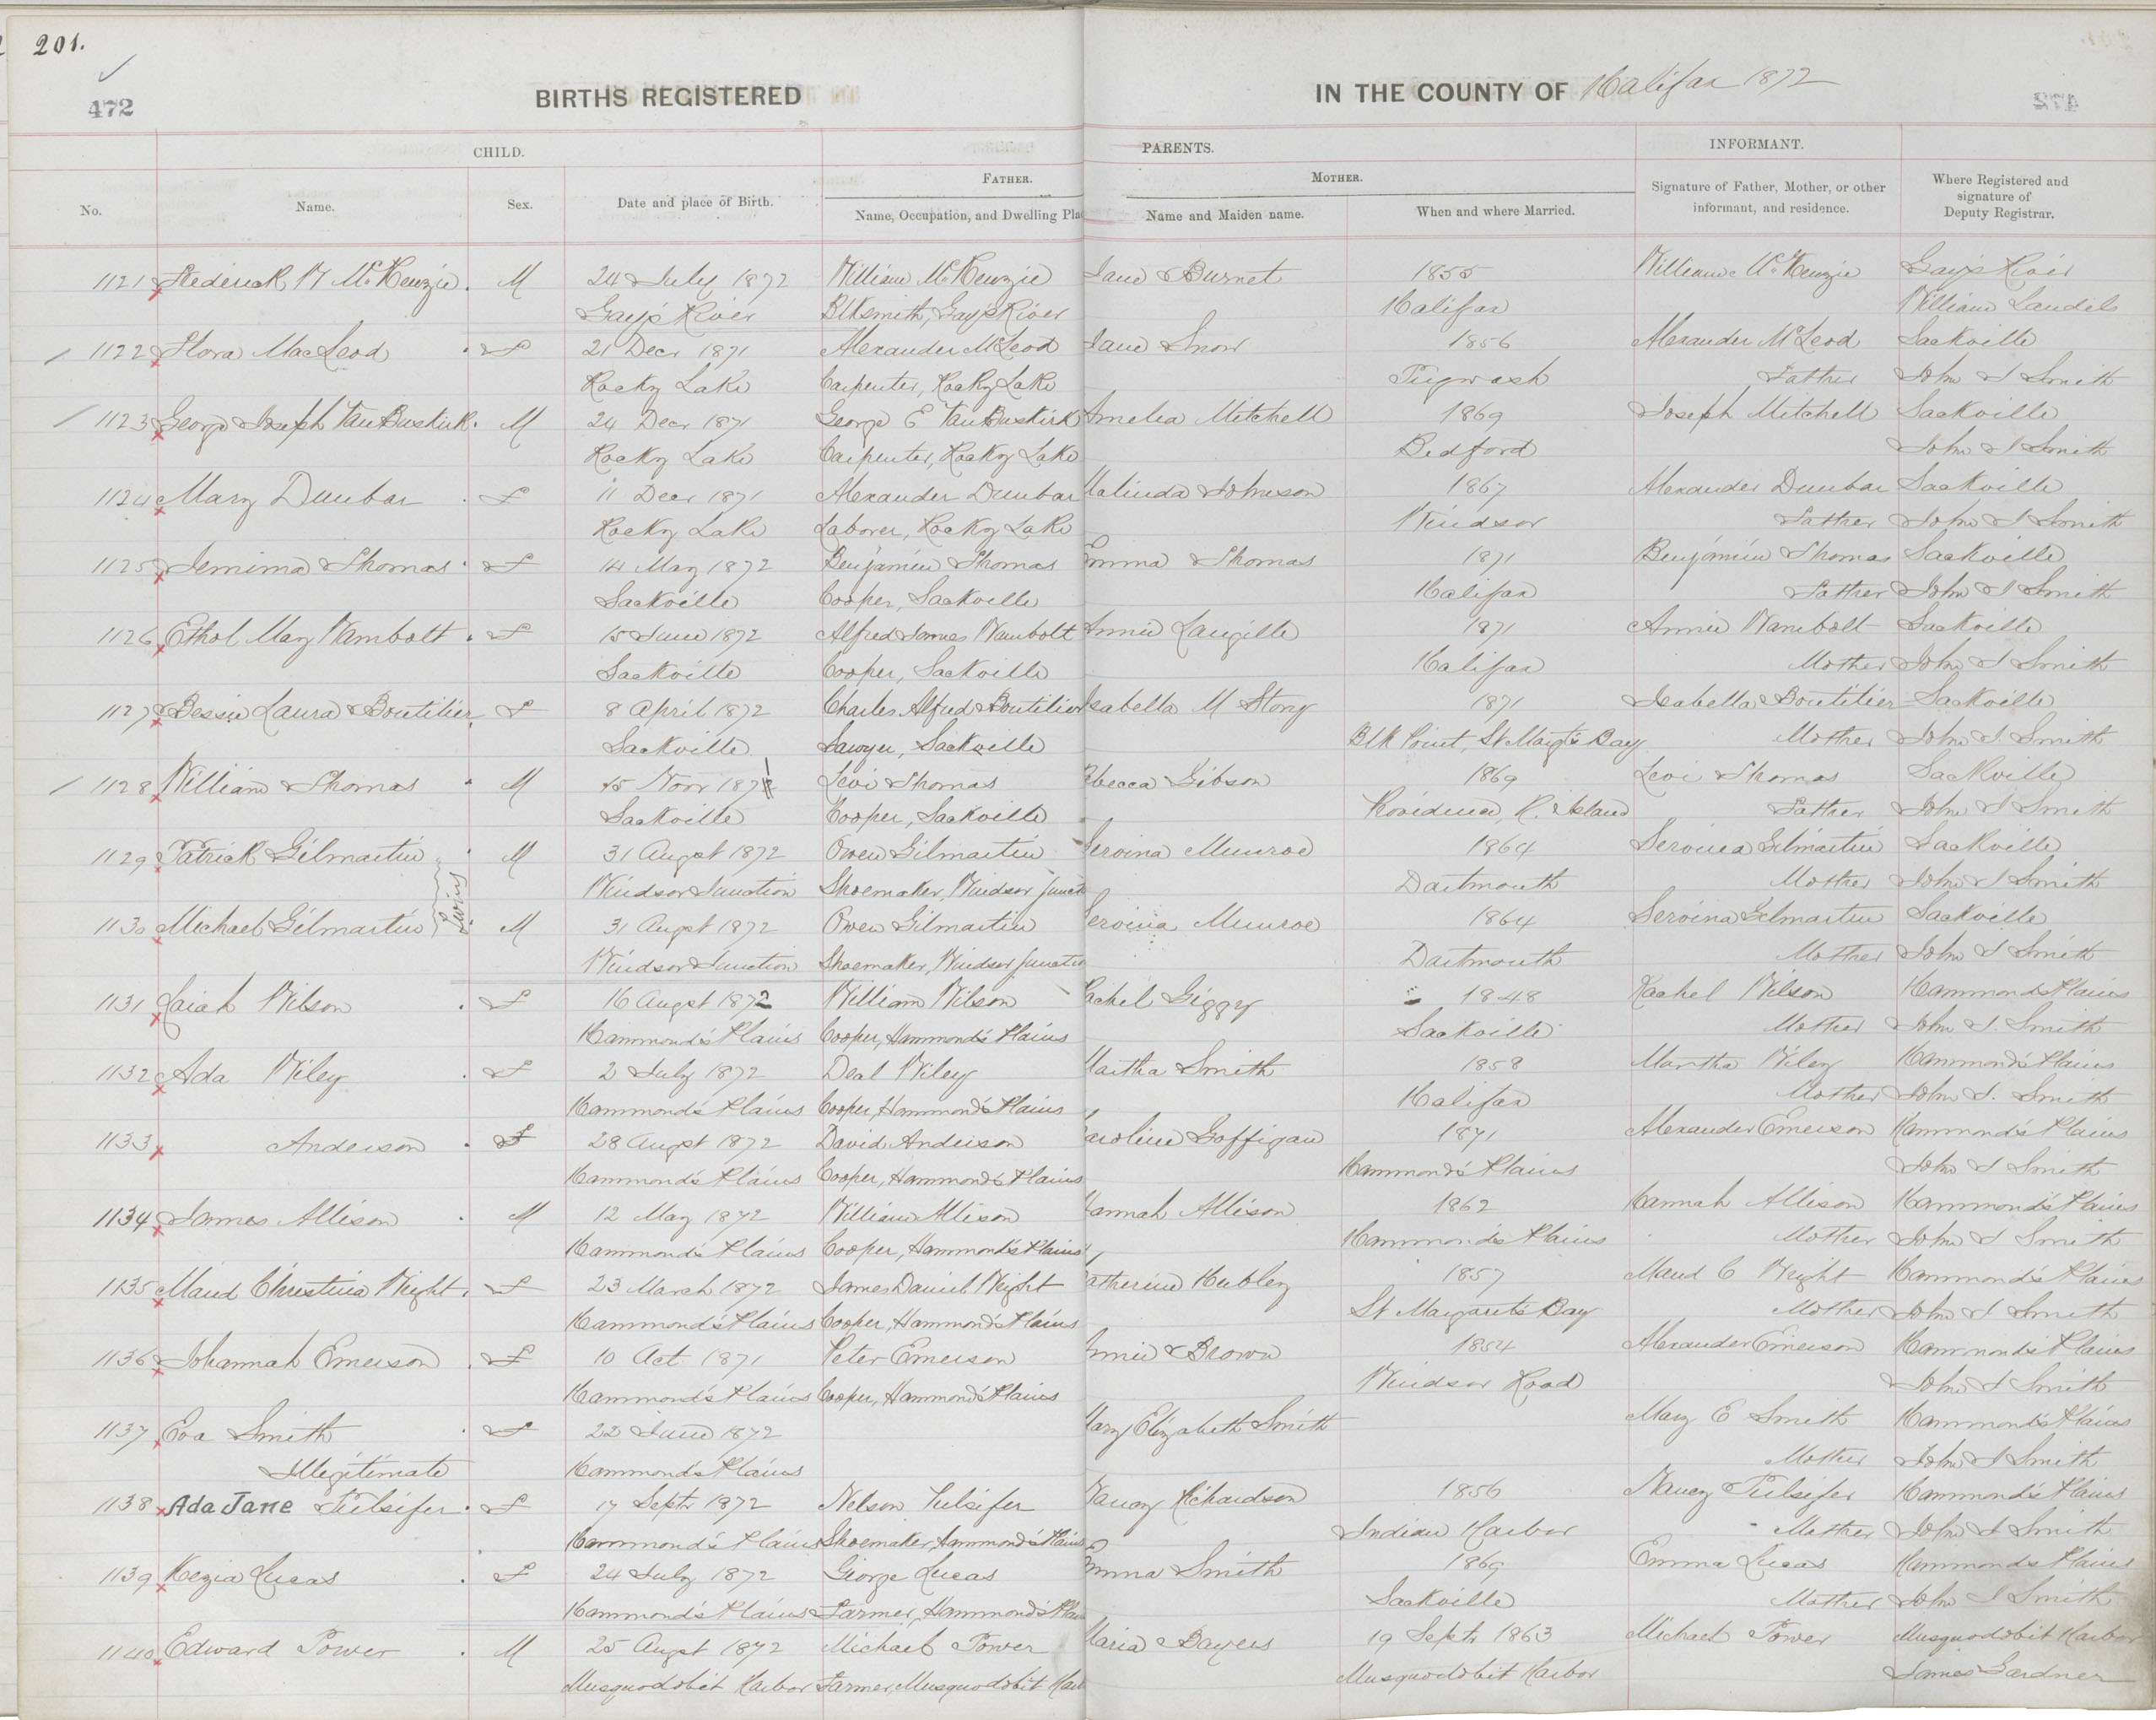 201.
472
BIRTHS REGISTERED IN THE COUNTY OF Halifax 1872
CHILD. PARENTS. INFORMANT.
FATHER. MOTHER.
No. Name. Sex. Date and place of Birth. Name, Occupation, and Dwelling Pla Name and Maiden name. When and where Married. Signature of Father, Mother, or other informant, and residence. Where Registered and signature of Deputy Registrar.
1121 Frederick W McKenzie. M 24 July 1872 William McKenzie Jane Burnet 1855 William McKenzie Gay's River
Gay's River Blksmith, Gay's River Halifax William Landels
1122 Flora MacLeod F 21 Decr 1871 Alexander McLeod Jane Snow 1856 Alexander McLeod Sackville
Rocky Lake Carpenter, Rocky Lake Pugwash Father John S Smith
1123 George Joseph VanBuskirk. M 24 Decr 1871 George E VanBuskirk Amelia Mitchell 1869 Joseph Mitchell Sackville
Rocky Lake Carpenter, Rocky Lake Bedford John S Smith
1124 Mary Dunbar F 11 Decr 1871 Alexander Dunbar Malinda Johnson 1867 Alexander Dunbar Sackville
Rocky Lake Laborer, Rocky Lake Windsor Father John S Smith
1125 Jemima Thomas F 14 May 1872 Benjamin Thomas Emma Thomas 1871 Benjamin Thomas Sackville
Sackville Cooper, Sackville Halifax Father John S Smith
1126 Ethel May Wambolt F 15 June 1872 Alfred James Wambolt Annie Langille 1871 Annie Wambolt Sackville
Sackville Cooper, Sackville Halifax Mother John S Smith
1127 Bessie Laura Boutilier F 8 April 1872 Charles Alfred Boutilier Isabella M Story 1871 Isabella Boutilier Sackville
Sackville Sawyer, Sackville Blk Point, St Margts Bay Mother John S. Smith
1128 William Thomas M 15 Novr 1871 Levi Thomas ebecca Gibson 1869 Levi Thomas Sackville
Sackville Cooper, Sackville Providence, R. Island Father John S Smith
1129 Patrick Gilmartin M 31 Augst 1872 Owen Gilmartin Servina Munroe 1864 Servina Gilmartin Sackville
Twins
Windsor Junction Shoemaker, Windsor Junct Dartmouth Mother John S Smith
1130 Michael Gilmartin M 31 Augst 1872 Owen Gilmartin Servina Munroe 1864 Servina Gilmartin Sackville
Windsor Junction Shoemaker, Windsor Junctio Dartmouth Mother John S Smith
1131 Laiah Wilson F 16 Augst 1872 William Wilson Rachel Giggy 1848 Rachel Wilson Hammond's Plains
Hammond's Plains Cooper, Hammond's Plains Sackville Mother John S. Smith
1132 Ada Wiley F 2 July 1872 Deal Wiley Martha Smith 1858 Martha Wiley Hammond's Plains
Hammond's Plains Cooper, Hammond's Plains Halifax Mother John S. Smith
1133 Anderson F 28 Augst 1872 David Anderson aroline Goffigan 1871 Alexander Emerson Hammond's Plains
Hammond's Plains Cooper, Hammond's Plains Hammond's Plains John S Smith
1134 James Allison M 12 May 1872 William Allison Hannah Allison 1862 Hannah Allison Hammond's Plains
Hammond's Plains Cooper, Hammond's Plains Hammond's Plains Mother John S Smith
1135 Maud Christina Wright. F 23 March 1872 James Daniel Wright atherine Hubley 1857 Maud C Wright Hammond's Plains
Hammond's Plains Cooper, Hammond's Plains St Margarets Bay Mother John S Smith
1136 Johannah Emerson F 10 Oct 1871 Peter Emerson Annie Brown 1854 Alexander Emerson Hammond's Plains
Hammond's Plains Cooper, Hammond's Plains Windsor Road John S Smith
1137 Eva Smith F 22 June 1872 Mary Elizabeth Smith Mary E Smith Hammond's Plains
Illegitimate Hammond's Plains Mother John S Smith
1138 Ada Jane Pulsifer F 17 Septr 1872 Nelson Pulsifer Nancy Richardson 1856 Nancy Pulsifer Hammond's Plains
Hammond's Plains Shoemaker, Hammond's Plains Indian Harbor Mother John S Smith
1139 Kezia Lucas F 24 July 1872 George Lucas Emma Smith 1869 Emma Lucas Hammond's Plains
Hammond's Plains Farmer, Hammond's Plai Sackville Mother John S Smith
1140 Edward Power M 25 Augst 1872 Michael Power Maria Bayers 19 Septr 1863 Michael Power Musquodobit Harbor
Musquodobit Harbor Farmer, Musquodobit Harb Musquodobit Harbor James Gardner